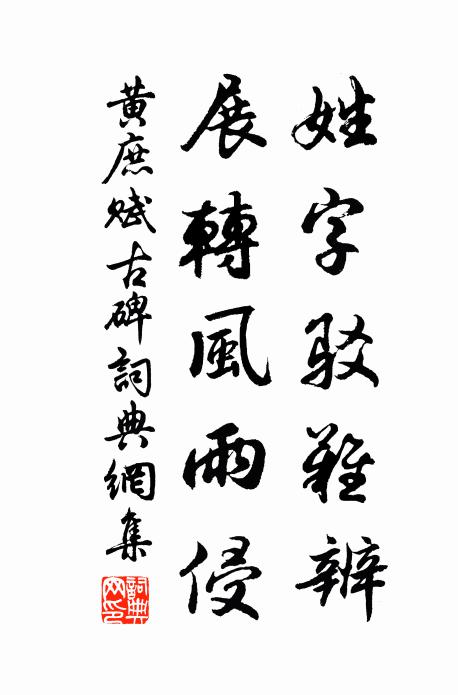 姓字駁難辨
展轉風雨侵
黃庶賦古碑詞典網集
詞典网印